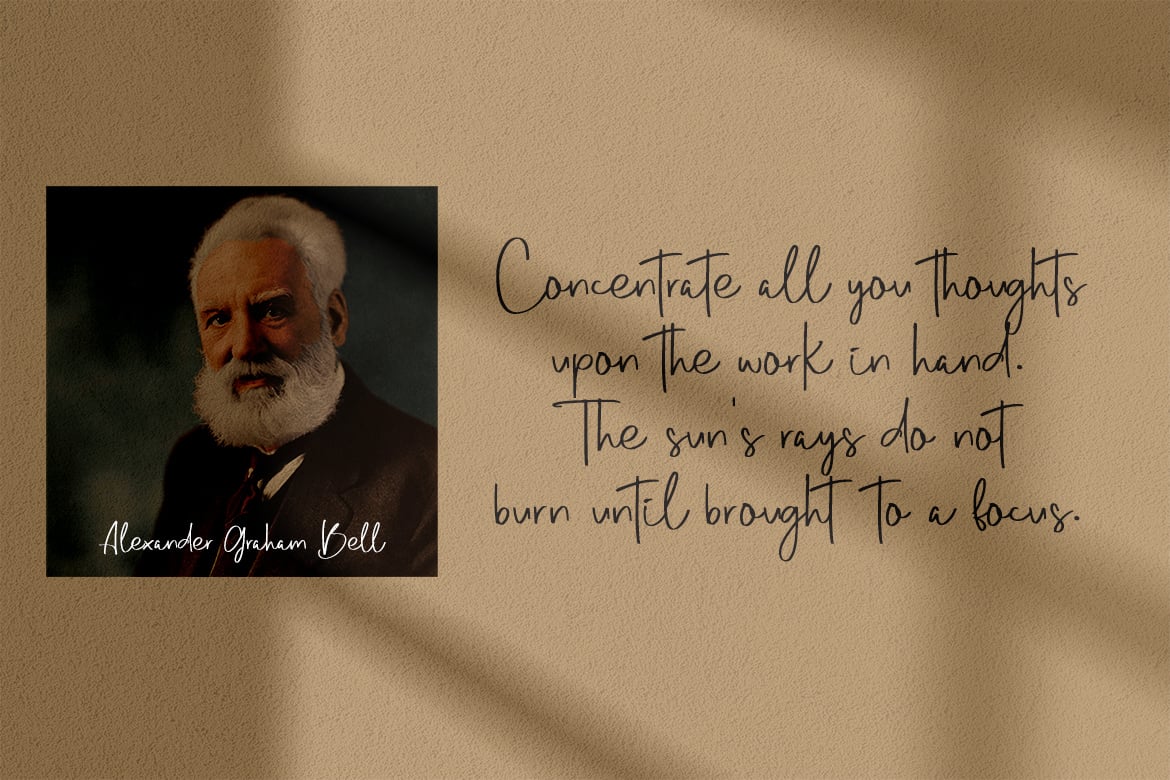 Alexander Graham Bell
Concentrate all you thoughts
upon the work in hand.
The sun's rays do not
burn until brought to a focus.